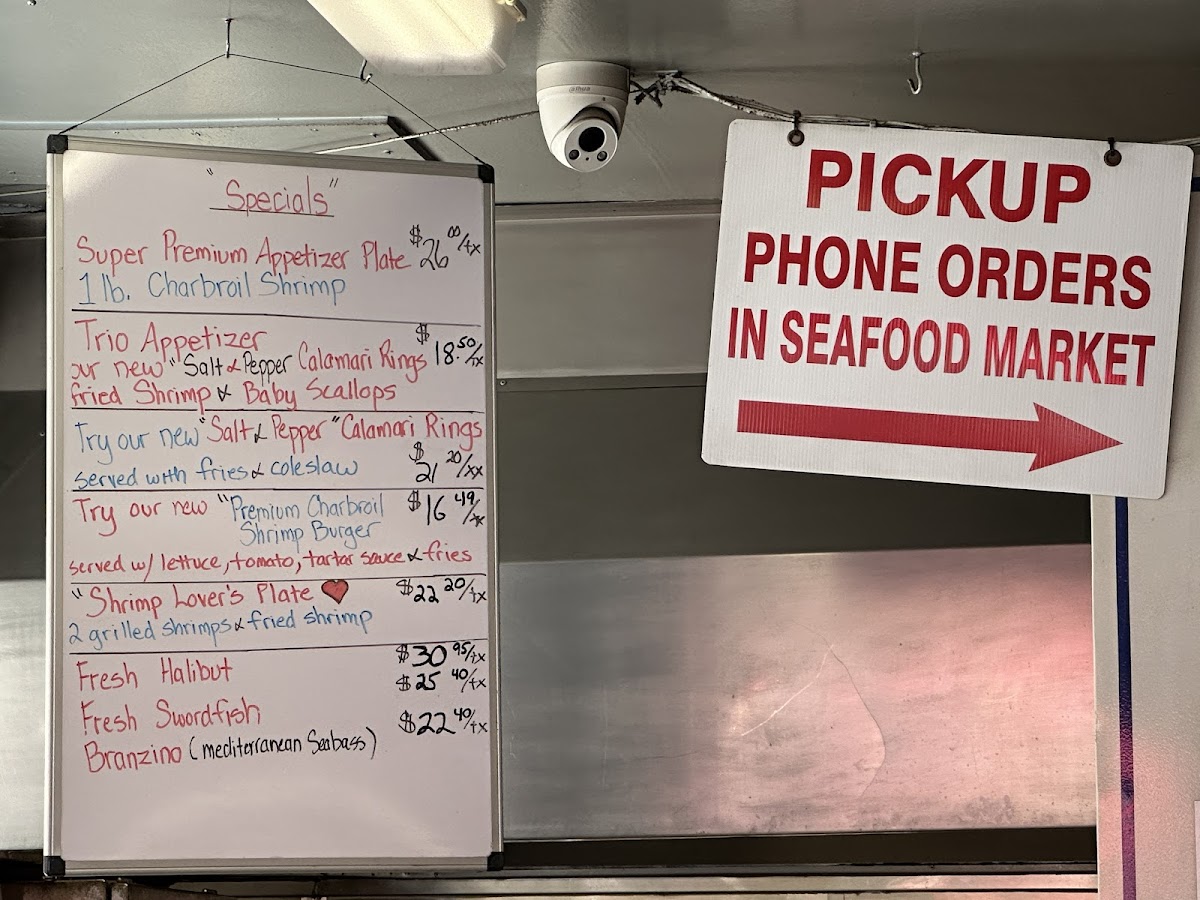 "Specials"
Super Premium Appetizer Plate $26.00/tx
1 lb. Charbroil Shrimp
Trio Appetizer $
our new "Salt & Pepper Calamari Rings 18.50/tx
fried Shrimp & Baby Scallops
Try our new "Salt & Pepper" Calamari Rings
served with fries & coleslaw $21 20/xx
Try our new "Premium Charbroil $16 49/tx
Shrimp Burger
served w/ lettuce, tomato, tartar sauce & fries
"Shrimp Lover's Plate $22 20/tx
2 grilled shrimps & fried shrimp
Fresh Halibut $30 95/tx
Fresh Swordfish $25 40/tx
Branzino (mediterranean Seabass) $22 40/tx
alhua
PICKUP
PHONE ORDERS
IN SEAFOOD MARKET